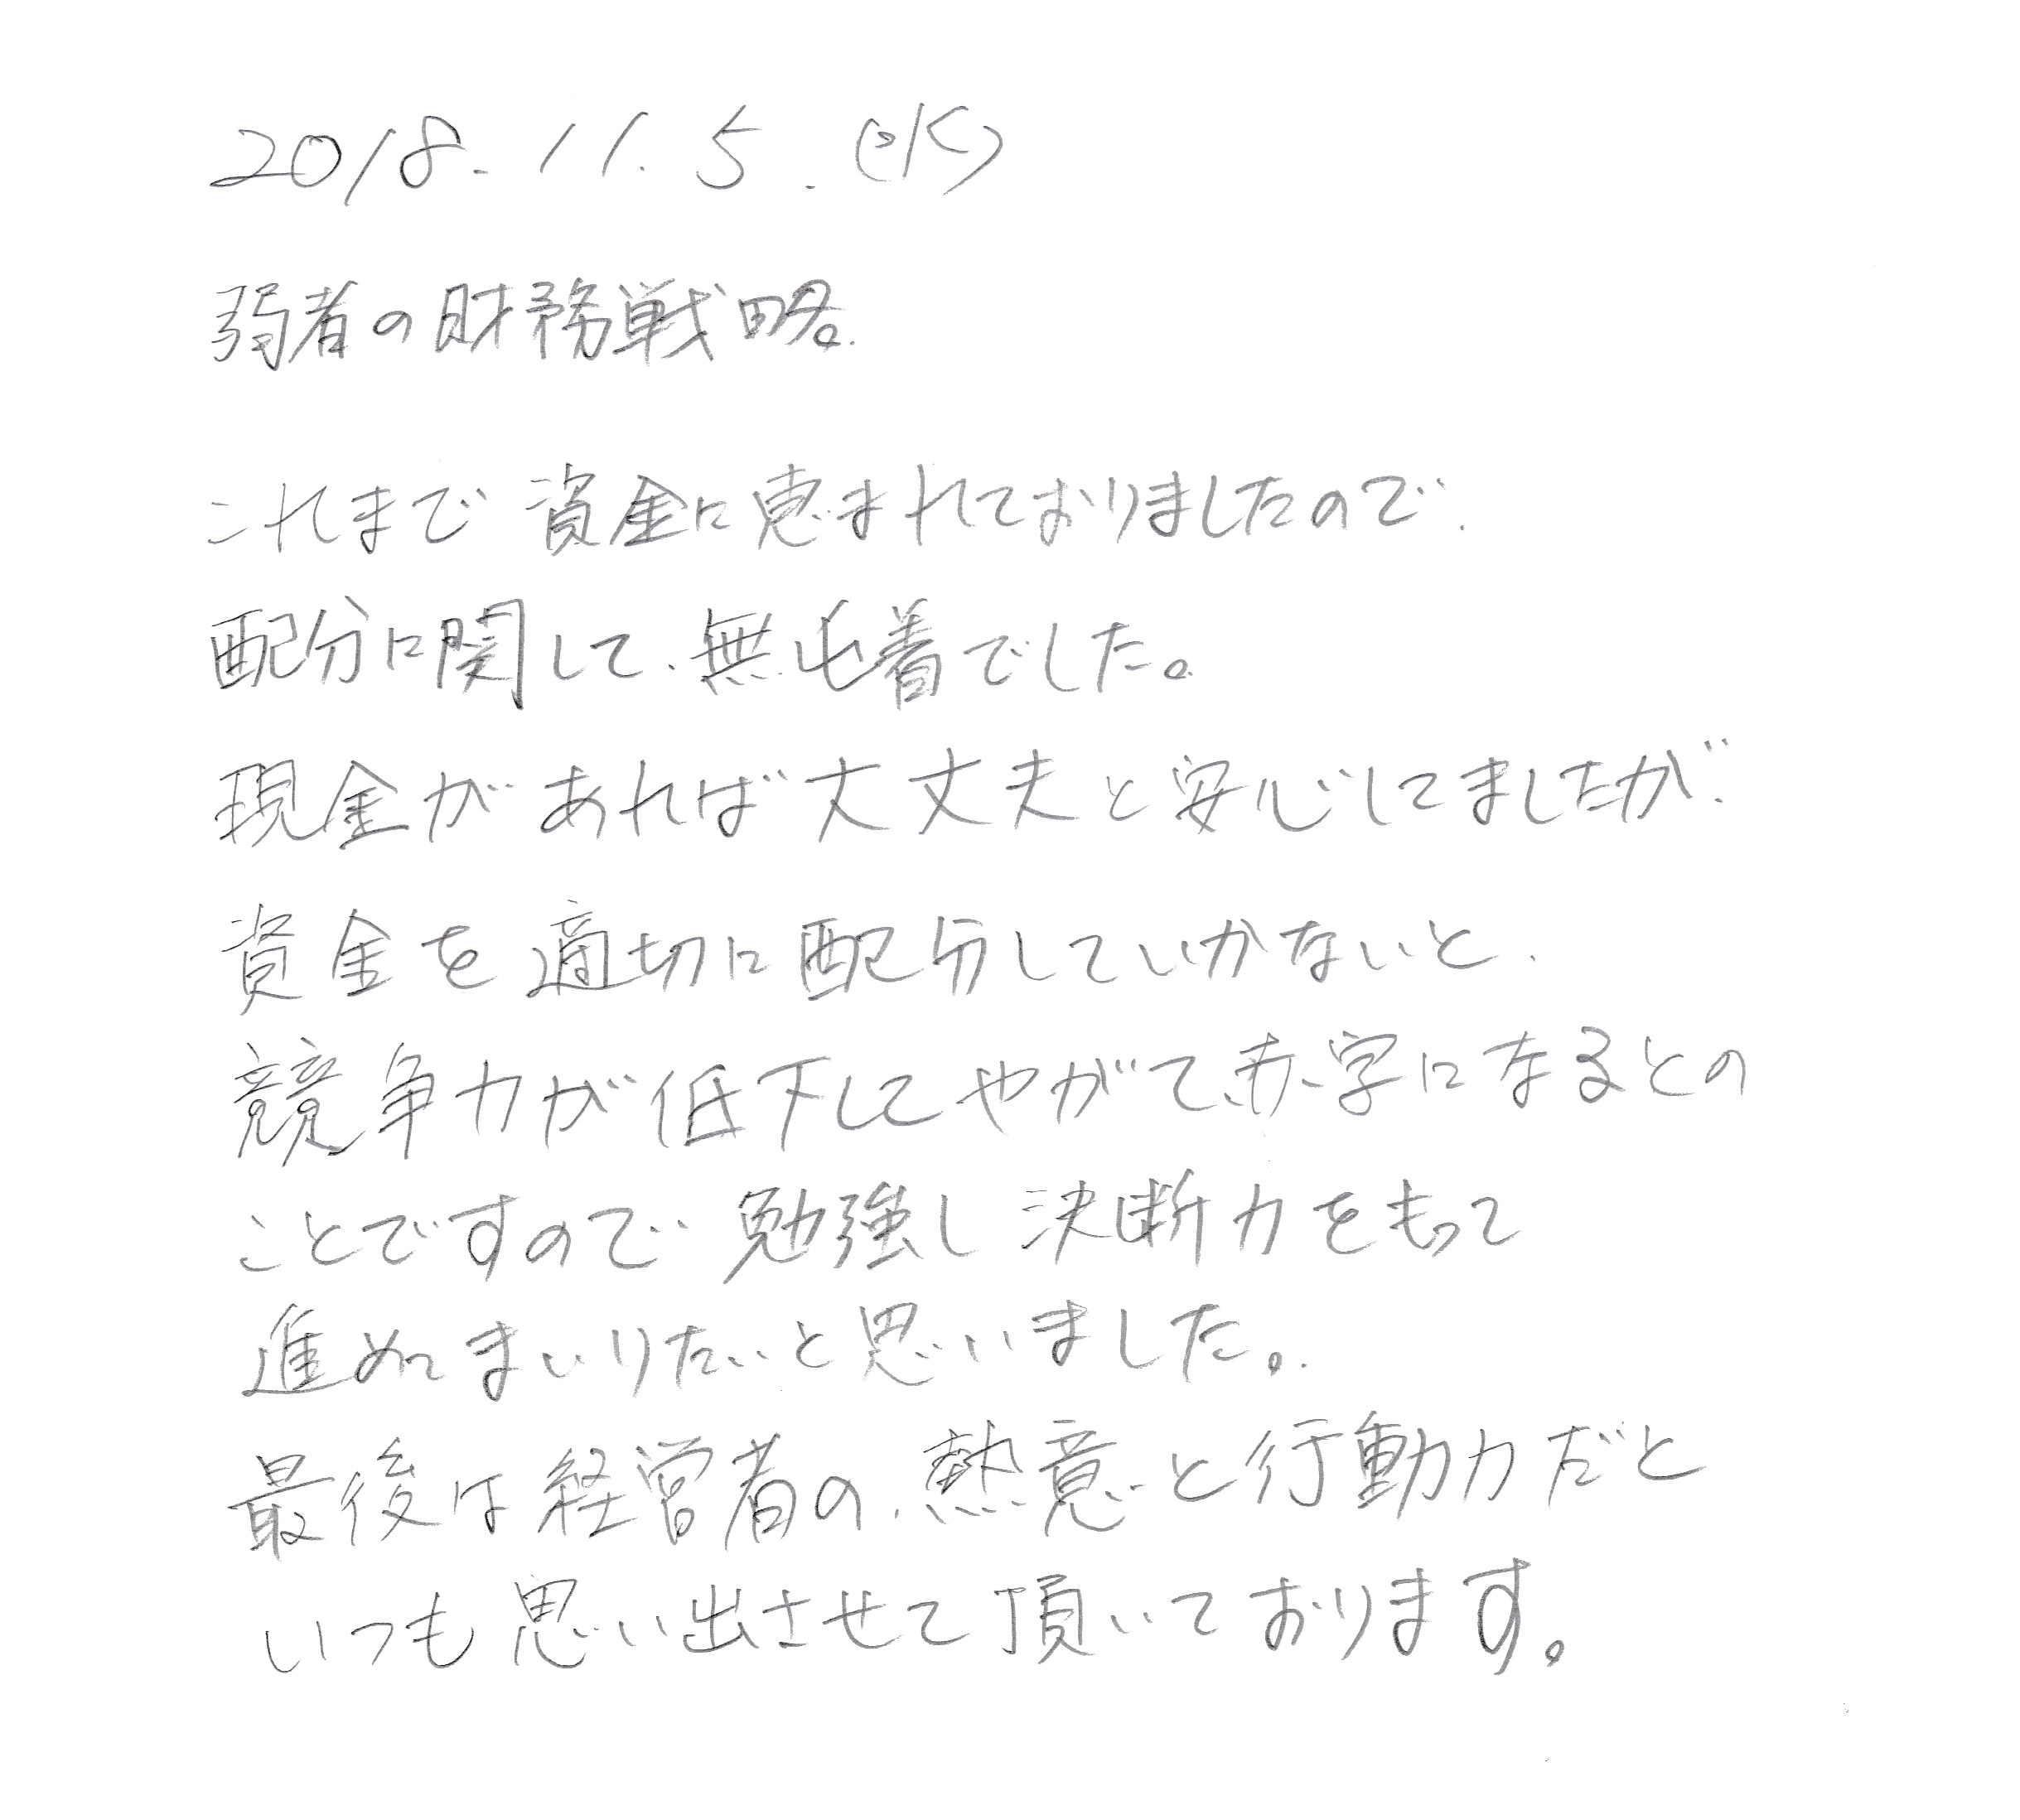 2018.11.5.(水)
弱者の財務戦略。
これまで資金に恵まれておりましたので、
配分に関して、無頓着でした。
現金があれば大丈夫と安心してましたが、
資金を適切に配分していかないと、
競争力が低下してやがて、赤字になるとの
ことですので勉強し決断力をもって
進めてまいりたいと思いました。
最後は経営者の、熱意と行動力だと
いつも思い出させて頂いております。